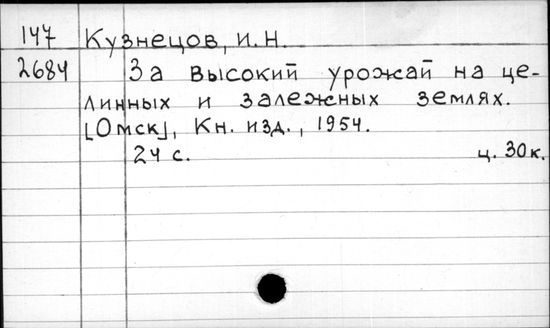 147 Кузнецов, И.Н.
2684 За высокий урожай на це-
линных и залежных землях.
[Омск], Кн. изд., 1954.
24 с. ц. 30к.